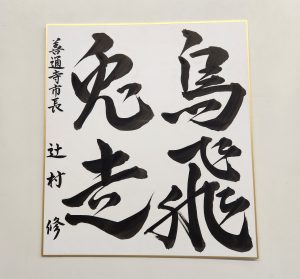 烏飛
兎走
善通寺市長 辻村 修